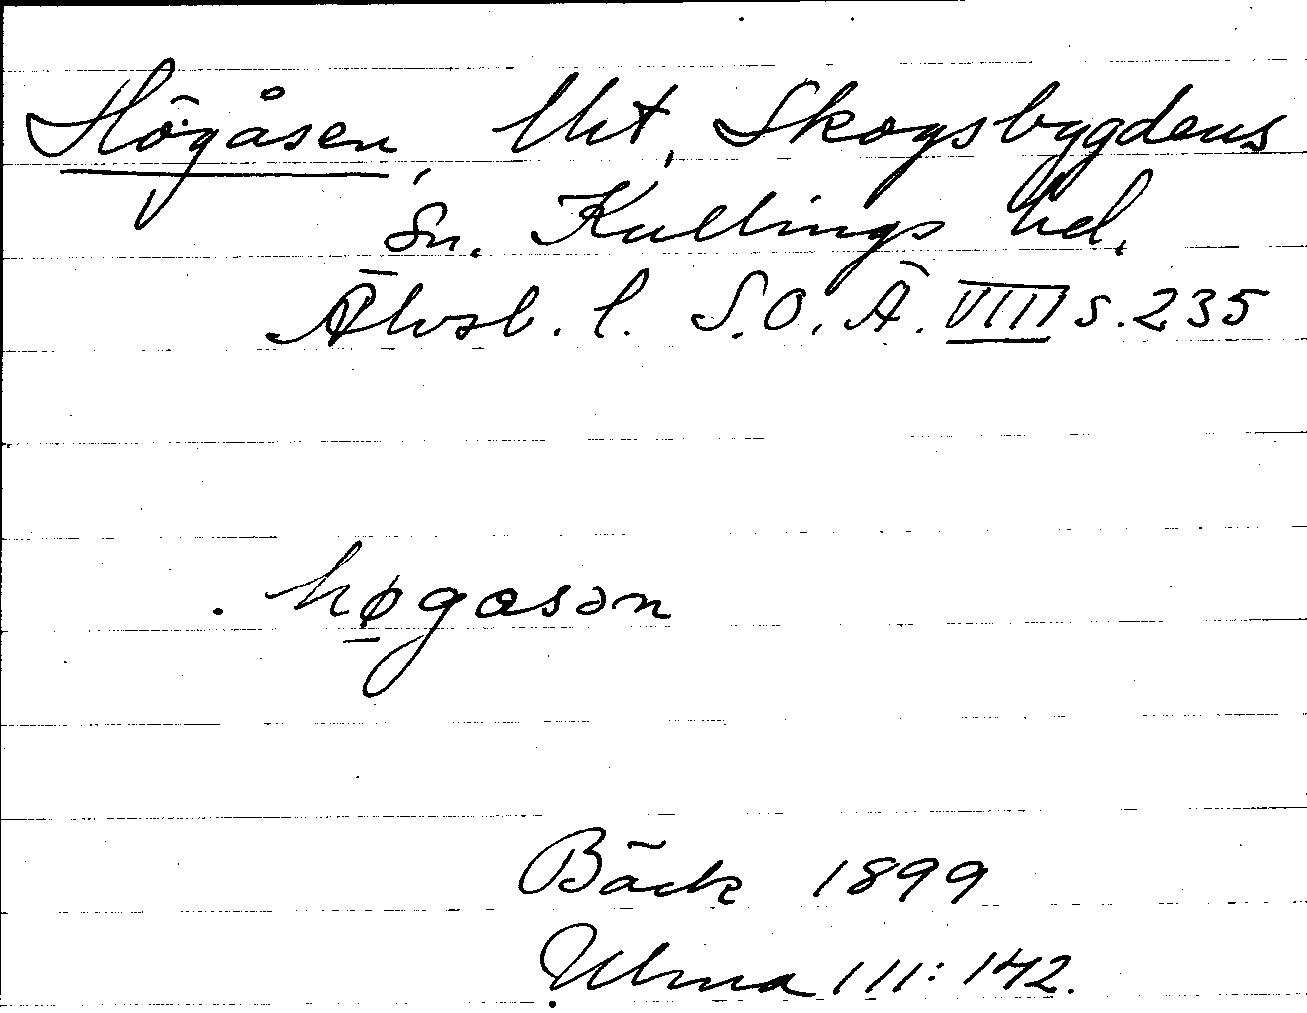 Högåsen, Uht, Skogsbygdens
sn. Kullings hd.
Älvsb. l. S.O.Ä. VIII s. 235
høgasən
Bäck 1899
Ulma 111:142.